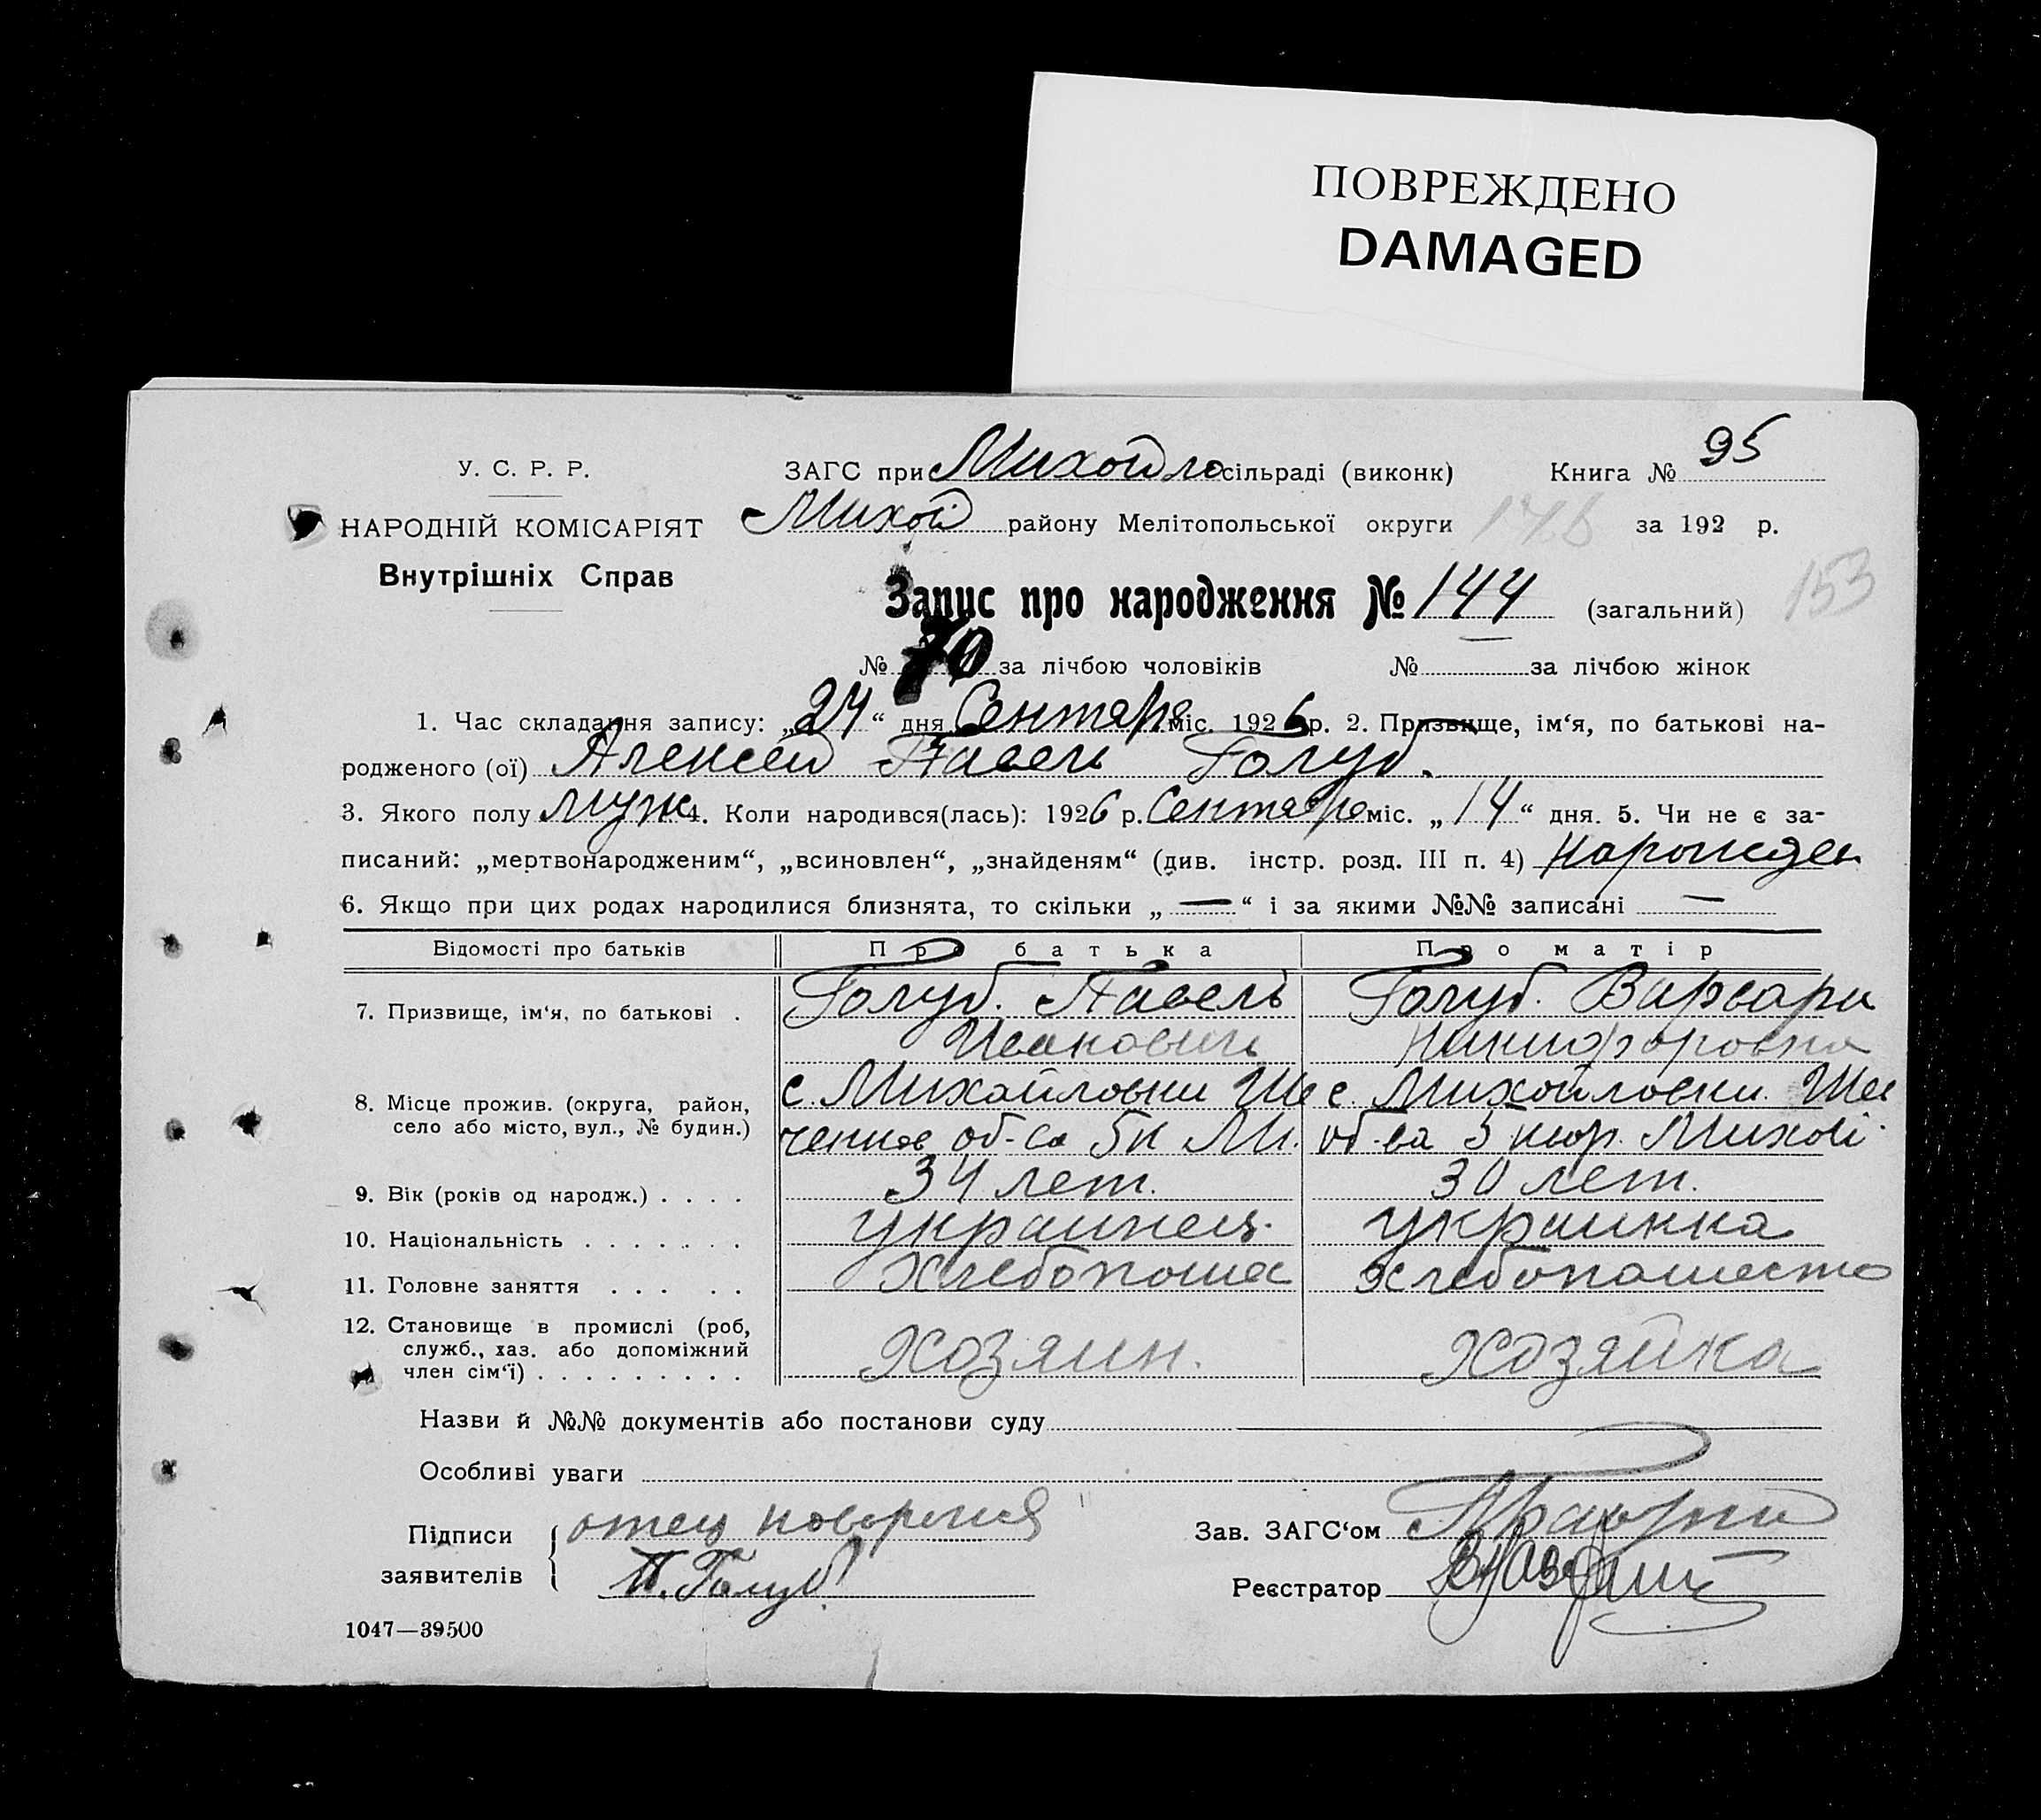 ПОВРЕЖДЕНО
DAMAGED
У. С. Р. Р.
НАРОДНІЙ КОМІСАРІЯТ
Внутрішніх Справ
ЗАГС при Михойло сільраді (виконк) Книга № 95
Михой району Мелітопольської округи 146 за 192 р.
153
Запис про народження № 144 (загальний)
№ 70 за лічбою чоловіків № за лічбою жінок
1. Час складання запису: „24“ дня Сентяря міс. 1926 р. 2. Призвище, ім‘я, по батькові на-
родженого (ої) Алексей Павель Голуб.
3. Якого полу муж 4. Коли народився(лась): 1926 р. Сентяре міс. „14“ дня. 5. Чи не є за-
писаний: „мертвонародженим“, „всиновлен“, „знайденям“ (див. інстр. розд. III п. 4)
6. Якщо при цих родах народилися близнята, то скільки „—“ і за якими №№ записані —
Відомості про батьків Про батька Про матір
7. Призвище, ім‘я, по батькові . Голуб. Павель Голуб. Варвара
Иванович Никифоровна
8. Місце прожив. (округа, район, с. Михайловки Ше с. Михойловки Шев
село або місто, вул., № будин.) ченков об-ва 5к М. об-ва 5 Михой
9. Вік (років од народж.) . . . . 34 лет. 30 лет.
10. Національність . . . . . . . украинец. украинка
11. Головне заняття . . . . . Хлебопашес Хлебопашество
12. Становище в промислі (роб,
служб., хаз. або допоміжний
член сім‘ї) . . . . . . . . . Хозяин. Хозяйка
Назви й №№ документів або постанови суду
Особливі уваги
Підписи
заявителів
отец
П. Голуб
Зав. ЗАГС‘ом
Реєстратор
1047—39500